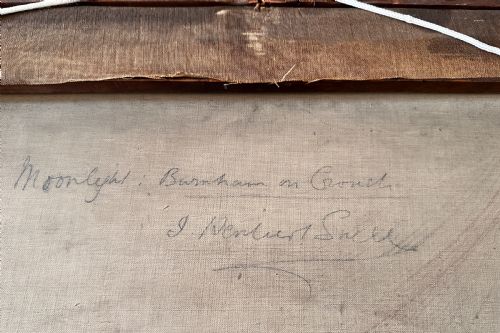 Moonlight: Burnham on Crouch
J Herbert Snell